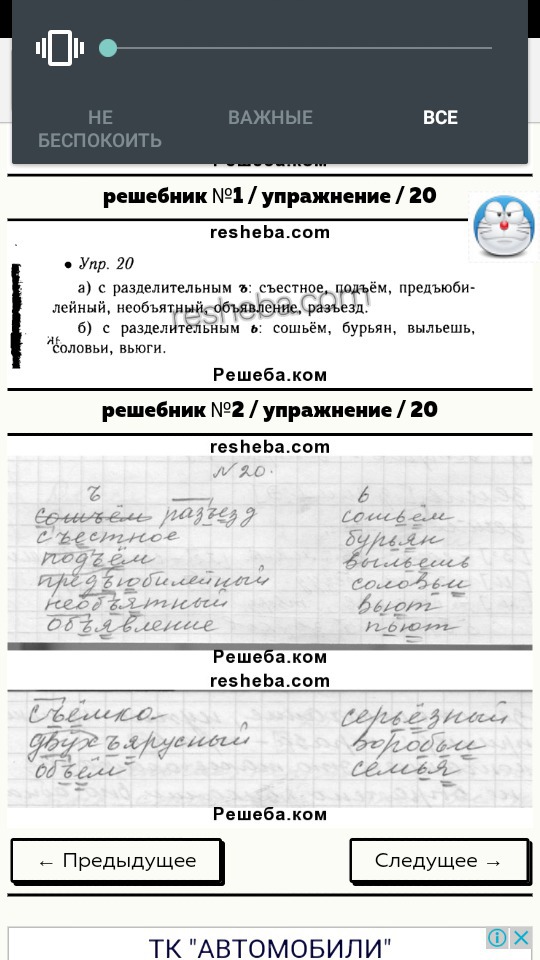 НЕ БЕСПОКОИТЬ
ВАЖНЫЕ
ВСЕ
Решеба.ком
решебник №1 / упражнение / 20
resheba.com
• Упр. 20
а) с разделительным ъ: съестное, подъём, предъюби-
лейный, необъятный, объявление, разъезд.
resheba.com
б) с разделительным ь: сошьём, бурьян, выльешь,
соловьи, вьюги.
Решеба.ком
решебник №2 / упражнение / 20
resheba.com
N 20.
ъ ь
сошъём разъезд сошьём
съестное бурьян
подъём выльешь
предъюбилейный соловьи
необъятный вьют
объявление пьют
Решеба.ком
resheba.com
Съёмка серьёзный
двухъярусный воробьи
объём семья
Решеба.ком
← Предыдущее
Следущее →
ТК "АВТОМОБИЛИ"